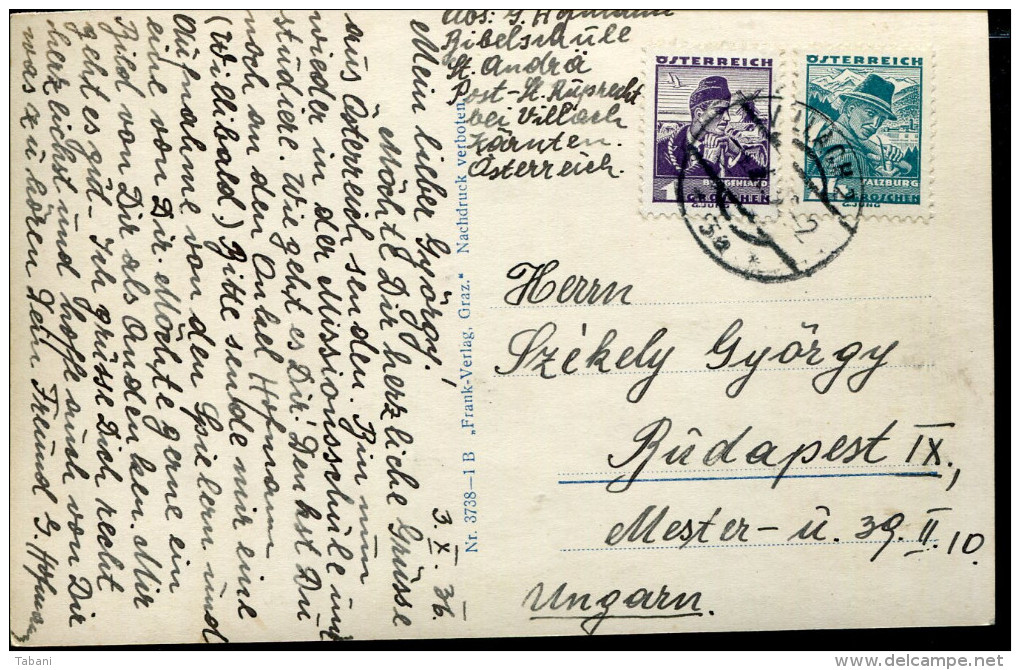 Abs: G. Hofmann
Bibelschule
St. Andrä
Post-St. Ruprecht
bei Villach
Kärnten.
Österreich.
3. X. 36.
Mein lieber Györgý!
Möchte Dir herzliche Grüsse
aus Österreich senden. Bin nun
wieder in der Missionsschule und
studiere. Wie geht es Dir? Denkst Du
noch an den Onkel Hofmann
(Willibald) Bitte sende mir eine
Aufnahme von den Spielern und
eine von Dir. Möchte gerne ein
Bild von Dir als Andenken. Mir
geht es gut. Ich grüsse Dich recht
herzlichst und hoffe auch von Dir
was zu hören Dein Freund G. Hofmann
Nr. 3738—1 B „Frank-Verlag, Graz.“ Nachdruck verboten
ÖSTERREICH
BURGENLAND
1
GROSCHEN
ÖSTERREICH
SALZBURG
GROSCHEN
VILLACH 2
Herrn
Székely György
Budapest IX.,
Mester- u. 39. II. 10
Ungarn.
Tabani
delcampe.net